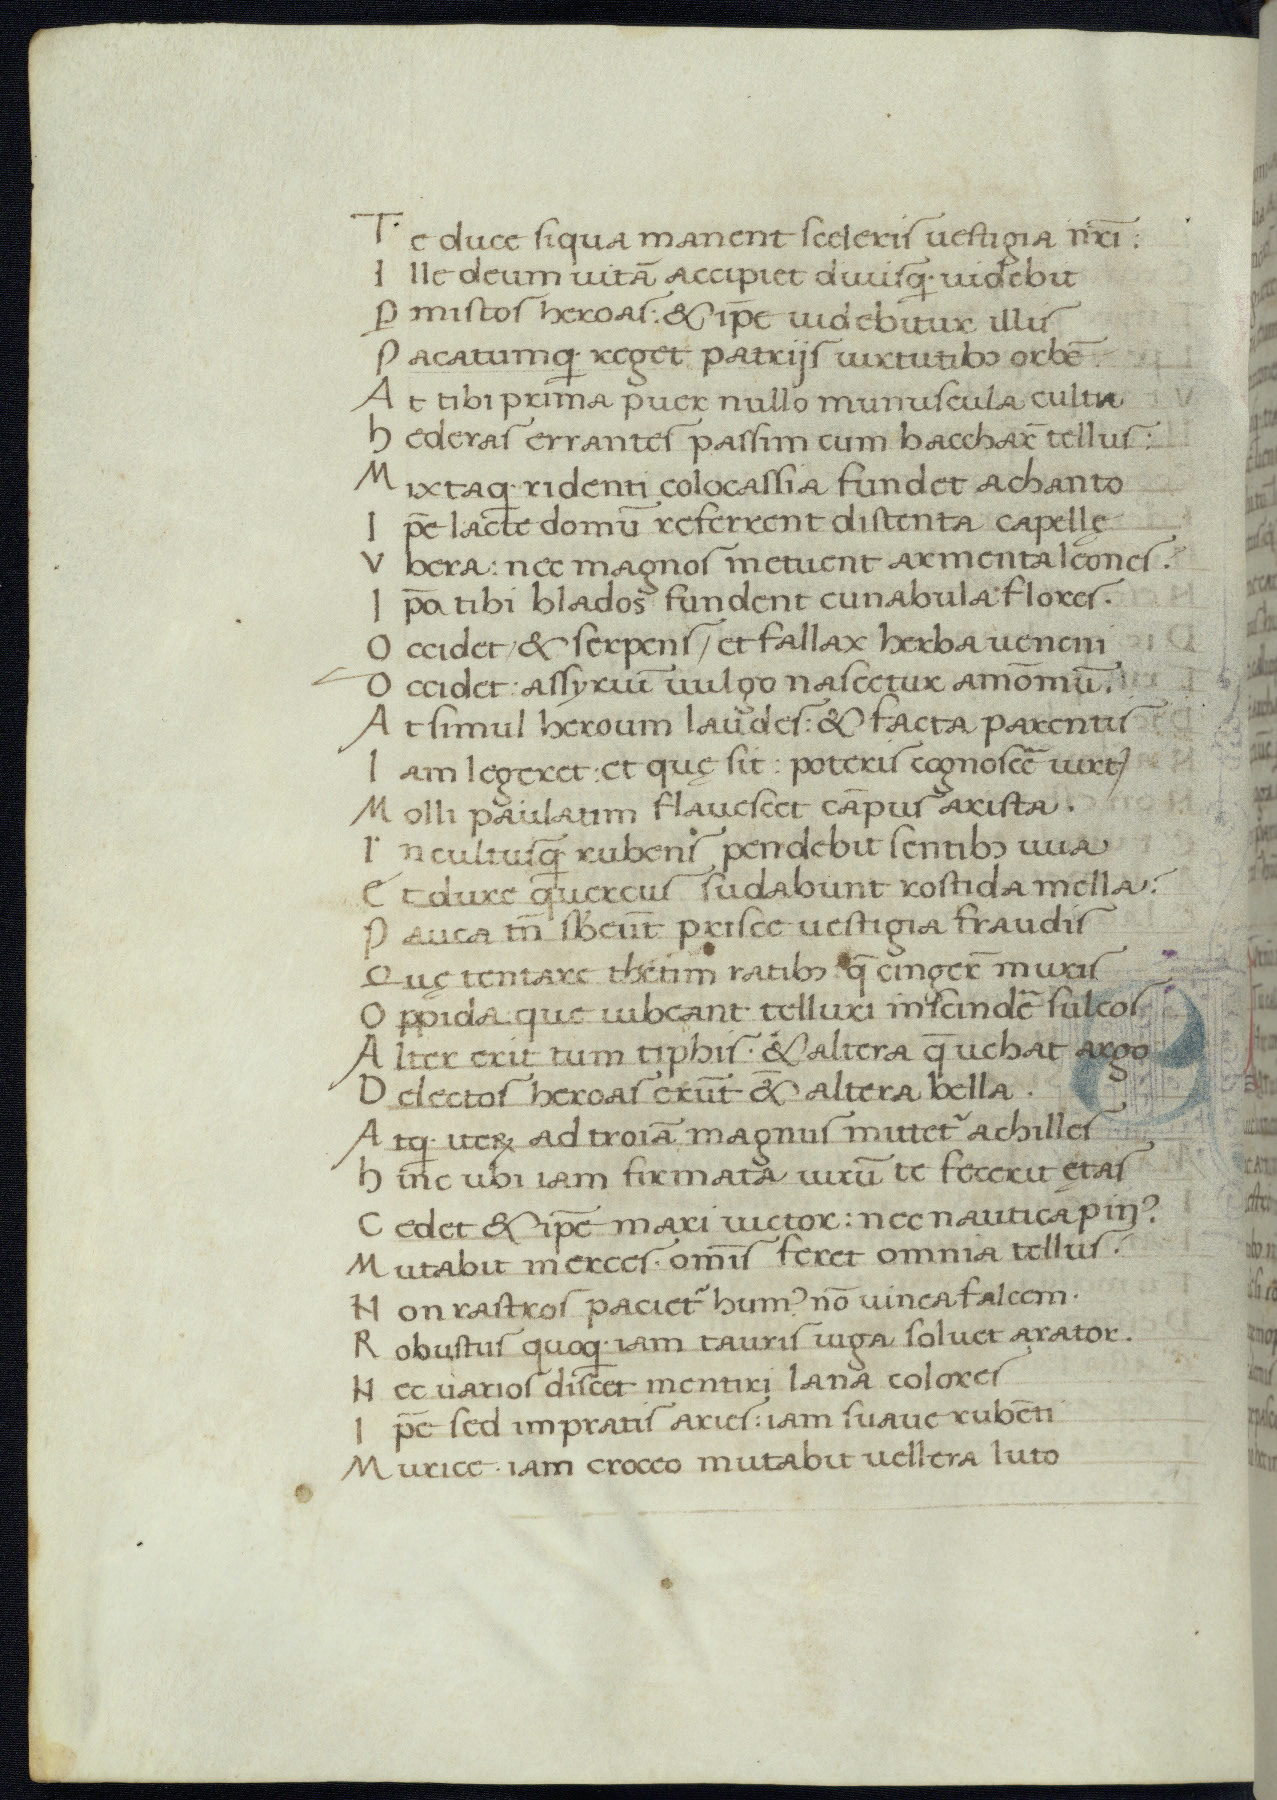 Te duce siqua manent sceleris uestigia nr̄i:
Ille deum uitā accipiet diuisq̨· uidebit
P̱mistos heroas: & ip̄e uidebitur illis
Pacatumq̨· reget patrijs uirtutibɔ orbē.
At tibi prima puer nullo munuscula cultu
hederas errantes passim cum bacchar̄ tellus:
Mixtaq̨· ridenti colocassia fundet achanto
Ip̄e lacte domū referrent distenta capellę
Vbera: nec magnos metuent armenta leones.
Ip̄a tibi blados fundent cunabula flores.
Occidet / & serpens / et fallax herba ueneni
Occidet: assyriūī uulgo nascetur amōmū.
At simul heroum laudes: & facta parentis
Iam legeret: et quę sit: poteris cognoscē uirt᾽
Molli paulatim flauescet cāpus arista.
Incultuisq̨ rubens pendebit sentibɔ uua
Et dure quercus sudabunt rostida mella:
Pauca tn̄ sb̄eūt prisce uestigia fraudis
Quę tentare thetim ratibɔ: q̄ cinger̄ muris
Oppida: que iubeant telluri inscindē sulcos
Alter erit tum tiphis· & altera q̄ uehat argo
Delectos heroas erūt & altera bella.
Atq̨· iteꝝ ad troiā magnus mittet᷑ achilles
hinc ubi iam firmata uirū te fecerit ętas
Cedet & ip̄e mari uictor: nec nautica pin᾽?
Mutabit merces· omīs feret omnia tellus.
Non rastros paciet᷑ hum᾽ nō uinea falcem.
Robustus quoq̨· iam tauris iuga soluet arator.
Nec uarios discet mentiri lana colores
Ip̄e sed impratis aries: iam suaue rubēti
Murice· iam croceo mutabit uellera luto